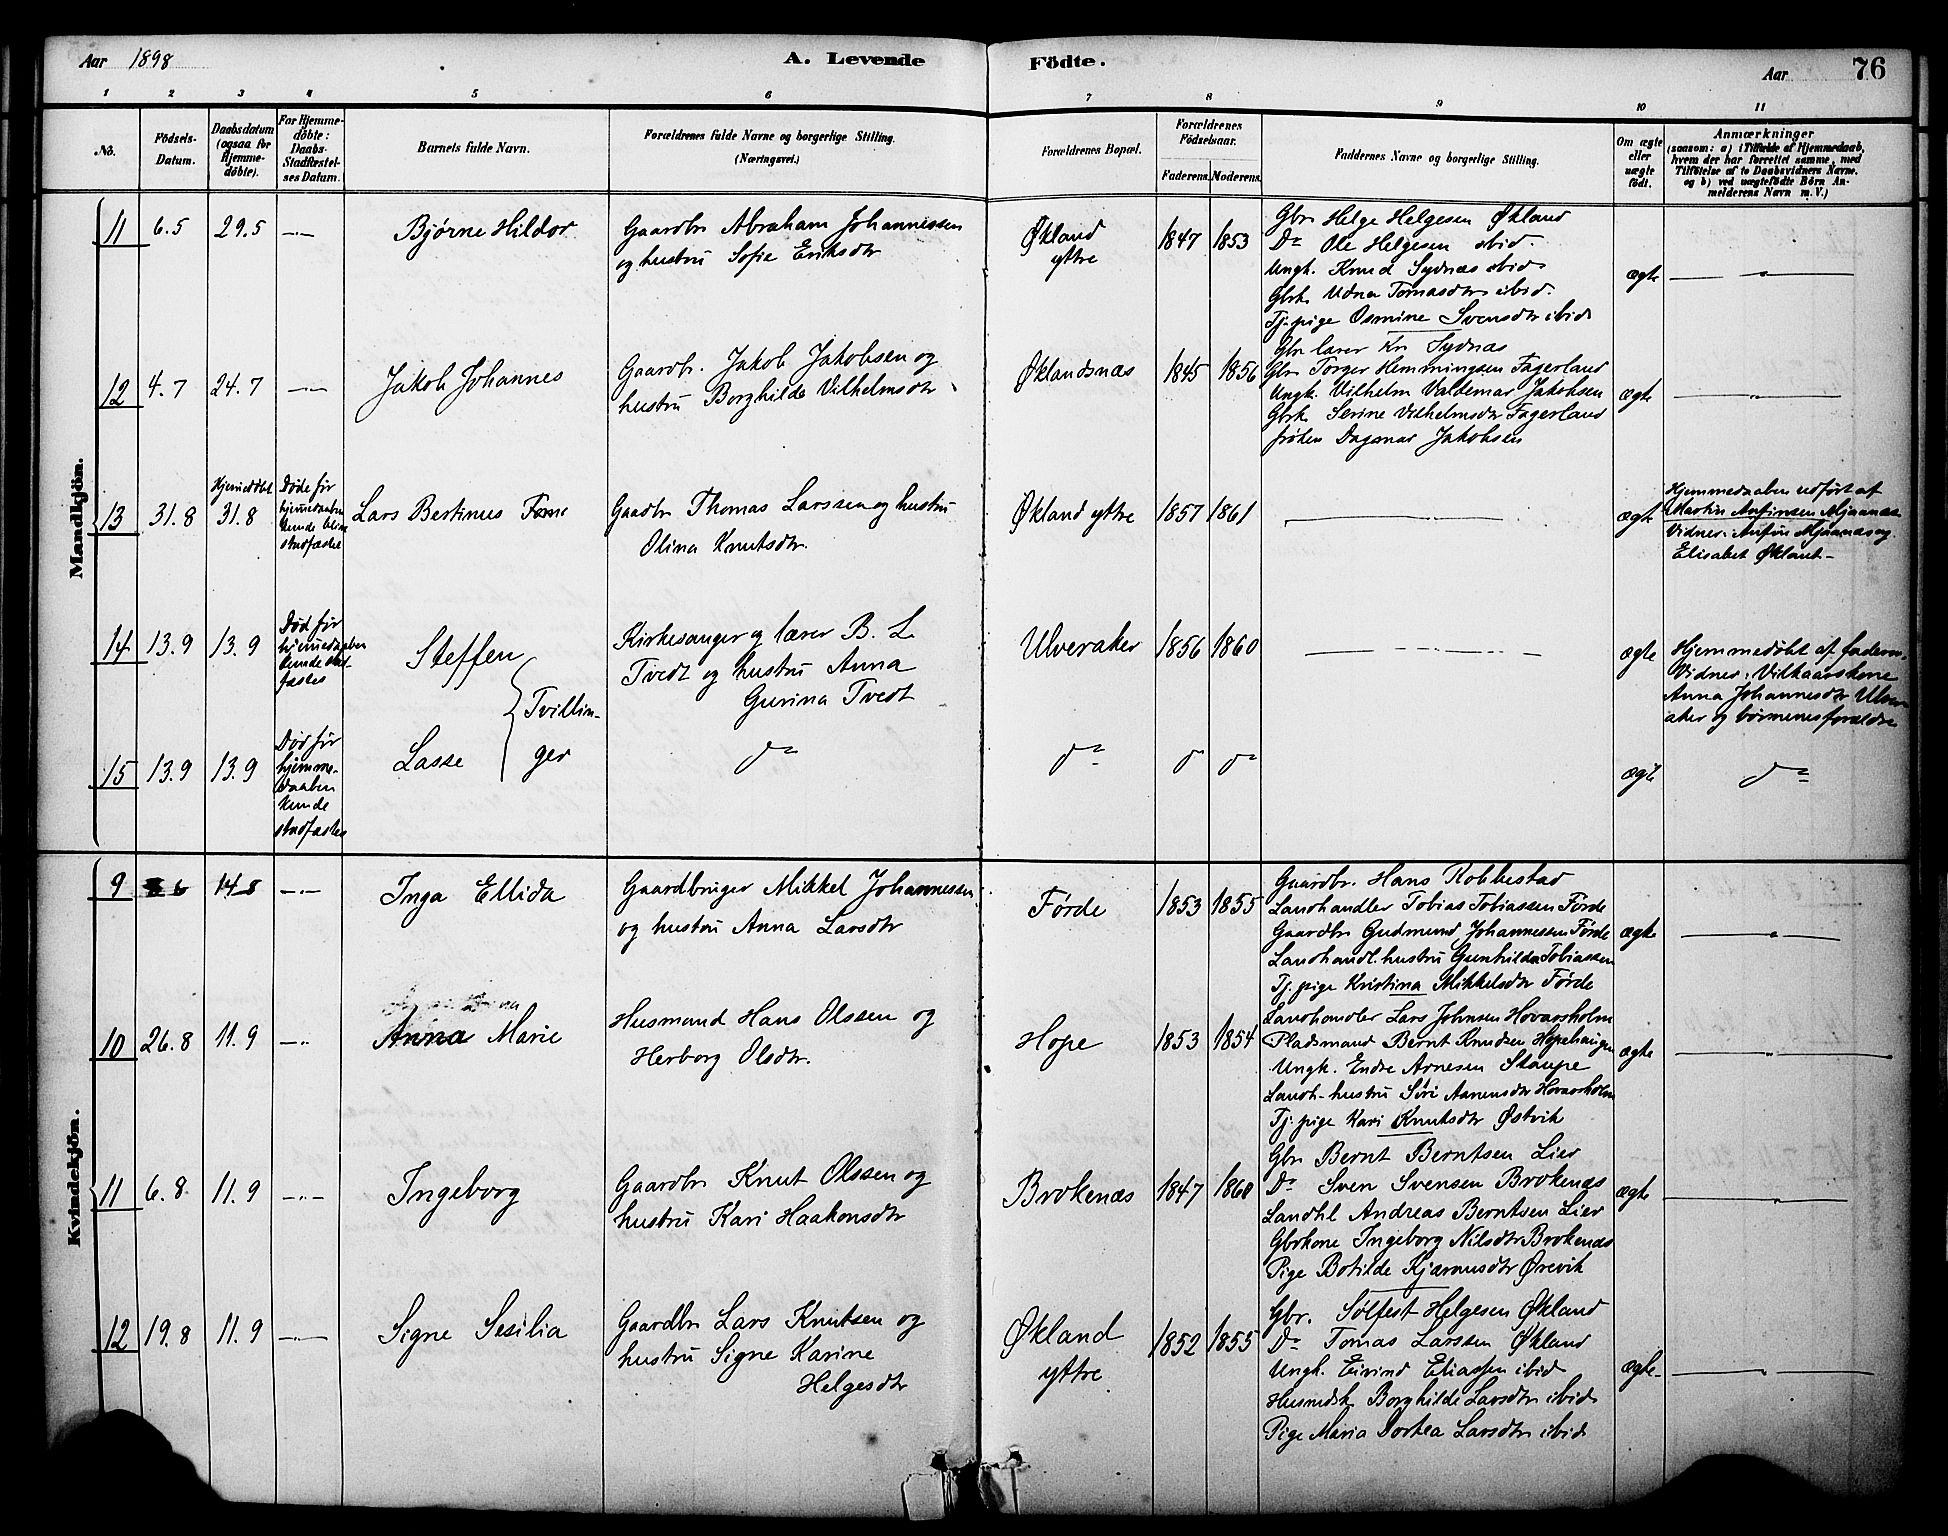 Aar 1898
A. Levende
Födte.
Aar
76
1 2 3 4 5 6 7 8 9 10 11
No.
Födsels-
Datum.
Daabsdatum
(ogsaa for
Hjemme-
döbte).
For Hjemme-
döbte:
Daabs-
Stadfæstel-
ses Datum.
Barnets fulde Navn.
Forældrenes fulde Navne og borgerlige Stilling.
(Næringsvei.)
Forældrenes Bopæl.
Forældrenes
Födselsaar.
Faderens. Moderens.
Faddernes Navne og borgerlige Stilling.
Om ægte
eller
uægte
födt.
Anmærkninger
(saasom: a) i Tilfælde af Hjemmedaab,
hvem der har forrettet samme, med
Tilföielse af to Daabsvidners Navne,
og b) ved uægtefödte Börn An-
melderens Navn m. V.)
Mandkjön.
11 6.5 29.5 —
Bjørne Hildor
Gaardbr Abraham Johannessen
og hustru Sofie Eriksdtr
Økland
yttre
1847 1853
Gbr Helge Helgesen Økland
Do Ole Helgesen ibid.
Ungk. Knud Sydnæs ibid
Gbrk. Udna Tomasdtr ibid.
Tj. pige Osmine Svensdtr ibid
ægte
12 4.7 24.7 —
Jakob Johannes
Gaardbr. Jakob Jakobsen og
hustru Borghilde Vilhelmsdtr
Øklandsnæs
1845 1856
Gbr lærer Kn Sydnæs
Gbr Torger Hemmingsen Fagerland
Ungk. Vilhelm Valdemar Jakobsen
Gbrk Serine Vilhelmsdtr Fagerland
frøken Dagmar Jakobsen
ægte
13 31.8
Hjemmedøbt
31.8
Døde før
hjemmedaaben
kunde blive
stadfæstet
Lars Bertinus
Gaardbr Thomas Larssen og hustru
Olina Knutsdtr.
Økland yttre
1857 1861
ægte
Hjemmedaaben udført af
Martin Anfinsen Mjaanæs
Vidner: Anfin Mjaanæs og
Elisabet Økland-
14 13.9 13.9
Død før
hjemmedaaben
kunde stad
fæstes
Steffen
Tvillin-
Kirkesanger og lærer B. L.
Tvedt og hustru Anna
Gurina Tvedt
Ulveraker
1856 1860
ægte
Hjemmedøbt af faderen.
Vidner: Vilkaarskone
Anna Johannesdtr Ulver
aker og børnenes forældre
15 13.9 13.9
Død før
hjemme-
daaben
kunde
stadfæstes
Lasse
ger
do
do
do do
ægte
do
Kvindekjön.
9 6 14.8 —
Inga Ellida
Gaardbruger Mikkel Johannessen
og hustru Anna Larsdtr
Førde
1853 1855
Gaardbr. Hans Robbestad
Landhandler Tobias Tobiassen Førde
Gaardbr Gudmund Johannessen Førde
Landhandl. hustru Gunhilda Tobiassen
Tj. pige Kristina Mikkelsdtr Førde
ægte
10 26.8 11.9 —
Anna Marie
Husmand Hans Olssen og
Herborg Olsdtr.
Hope
1853 1854
Landhandler Lars Johnsen Hovarsholm
Pladsmand Bernt Knudsen Hopehaugen
Ungk. Endre Arnesen Staupe
Landh-hustru Siri Aanensdtr Hovarsholm
Tj. pige Kari Knutsdtr Østvik
ægte
11 6.8 11.9 —
Ingeborg
Gaardbr Knut Olssen og
hustru Kari Haakonsdtr
Brokenæs
1847 1860
Gbr Bernt Berntsen Lier
Do Sven Svensen Brokenæs
Landhl Andreas Berntsen Lier
Gbrkone Ingeborg Nilsdtr Brokenæs
Pige Botilde Kjærnusdtr Ørevik
ægte
12 19.8 11.9 —
Signe Sesilia
Gaardbr Lars Knutsen og
hustru Signe Karine
Helgesdtr
Økland
yttre
1852 1855
Gbr. Sølfest Helgesen Økland
Do Tomas Larssen Økland
Ungk. Eivind Eliassen ibid
Husmdsk Borghilde Larsdtr ibid
Pige Maria Dortea Larsdtr ibid
ægte